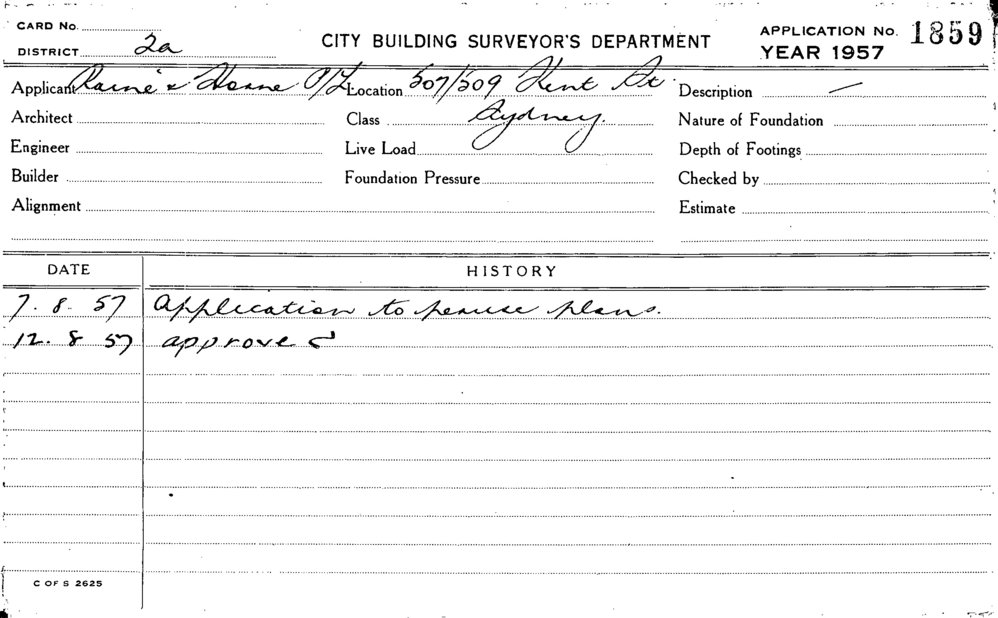 CARD No.
DISTRICT 2a
CITY BUILDING SURVEYOR'S DEPARTMENT
APPLICATION No. 1859
YEAR 1957
Applicant Raine & Horne P/L Location 507/509 Kent St. Description —
Architect Class Sydney. Nature of Foundation
Engineer Live Load Depth of Footings
Builder Foundation Pressure Checked by
Alignment Estimate
DATE HISTORY
7. 8. 57 Application to peruse plans.
12. 8 57 approved
C OF S 2625